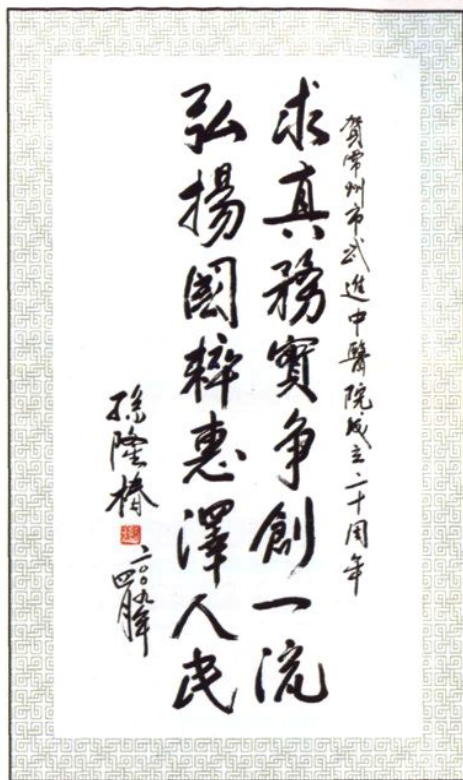 賀常州市武進中醫院成立二十周年
求真務實争創一流
弘揚國粹惠澤人民
孫隆椿
二〇〇九年
四月